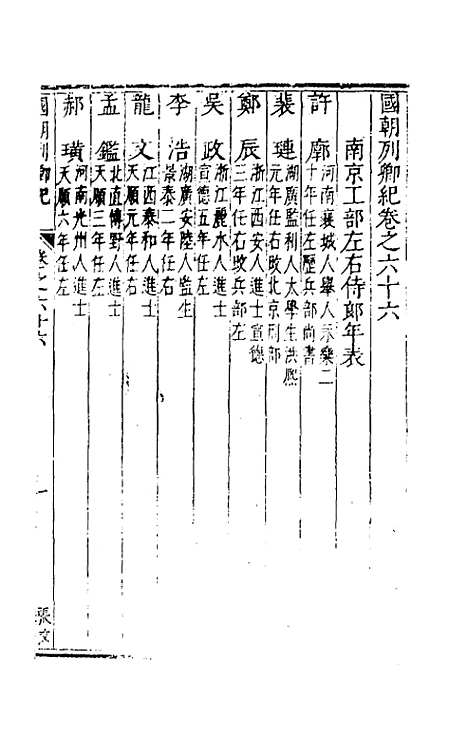 國朝列卿紀卷之六十六
南京工部左右侍郎年表
許廓 河南襄城人舉人永樂二
十年任左歷兵部尚書
裴璉 湖廣監利人太學生洪熙
元年任右改北京刑部
鄭辰 浙江西安人進士宣德
三年任右改兵部左
吳政 浙江麗水人進士
宣德五年任左
李浩 湖廣安陸人監生
景泰二年任右
龍文 江西泰和人進士
天順元年任右
孟鑑 北直博野人進士
天順三年任左
郝璜 河南光州人進士
天順六年任左
國朝列卿紀
卷之六十六
一